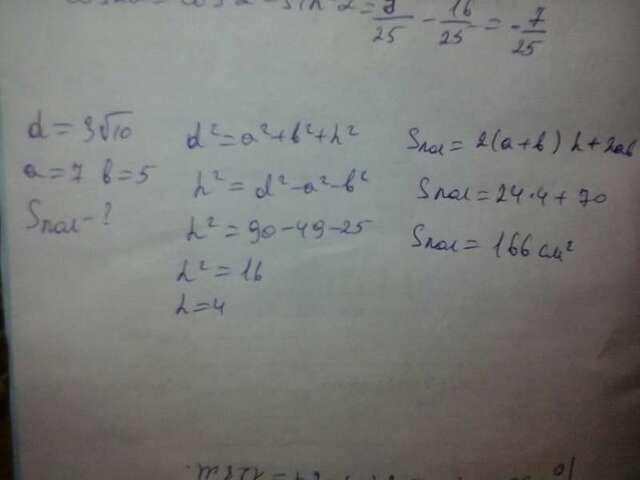 = 9/25 - 16/25 = -7/25
d = 3√10
a = 7 b = 5
Sпол - ?
d² = a² + b² + h²
h² = d² - a² - b²
h² = 90 - 49 - 25
h² = 16
h = 4
Sпол = 2(a + b) h + 2ab
Sпол = 24 · 4 + 70
Sпол = 166 см²